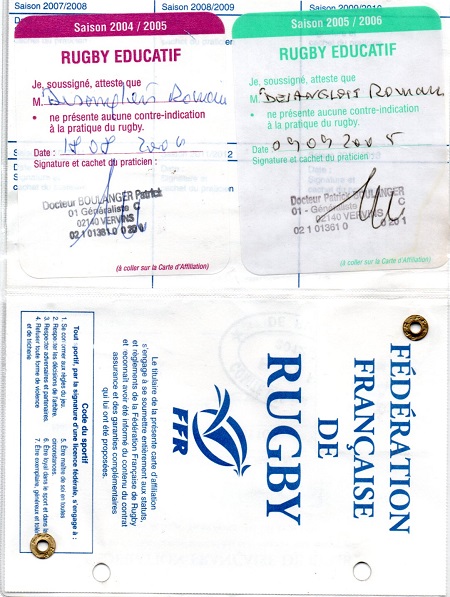 Saison 2007/2008
Saison 2008/2009
Saison 2004 / 2005
RUGBY EDUCATIF
Je, soussigné, atteste que
M. Romain
• ne présente aucune contre-indication
à la pratique du rugby.
Date :
Signature et cachet du praticien :
Docteur BOULANGER Patrick
01 Généraliste C
02140 VERVINS
02 1 01361 0
(à coller sur la Carte d'Affiliation)
Saison 2005 / 2006
RUGBY EDUCATIF
Je, soussigné, atteste que
M. DESANGLOIS Romain
• ne présente aucune contre-indication
à la pratique du rugby.
Date 09 09 2005
Signature et cachet du praticien :
Docteur BOULANGER
01 - Généraliste C
02140 VERVINS
02 1 01361 0 20 1
(à coller sur la Carte d'Affiliation)
FÉDÉRATION
FRANÇAISE
DE
RUGBY
FFR
Le titulaire de la présente carte d'affiliation
s'engage à se soumettre entièrement aux statuts,
et règlements de la Fédération Française de Rugby
et reconnaît avoir été informé du contenu du contrat
assurance et des garanties complémentaires
qui lui ont été proposées.
Code du sportif
Tout sportif, par la signature d'une licence fédérale, s'engage à :
1. Se conformer aux règles du jeu.
2. Respecter les décisions de l'arbitre.
3. Respecter adversaires et partenaires
4. Refuser toute forme de violence
et de tricherie
5. Être maître de soi en toutes
circonstances.
6. Être loyal dans le sport et dans la
7. Être exemplaire, généreux et